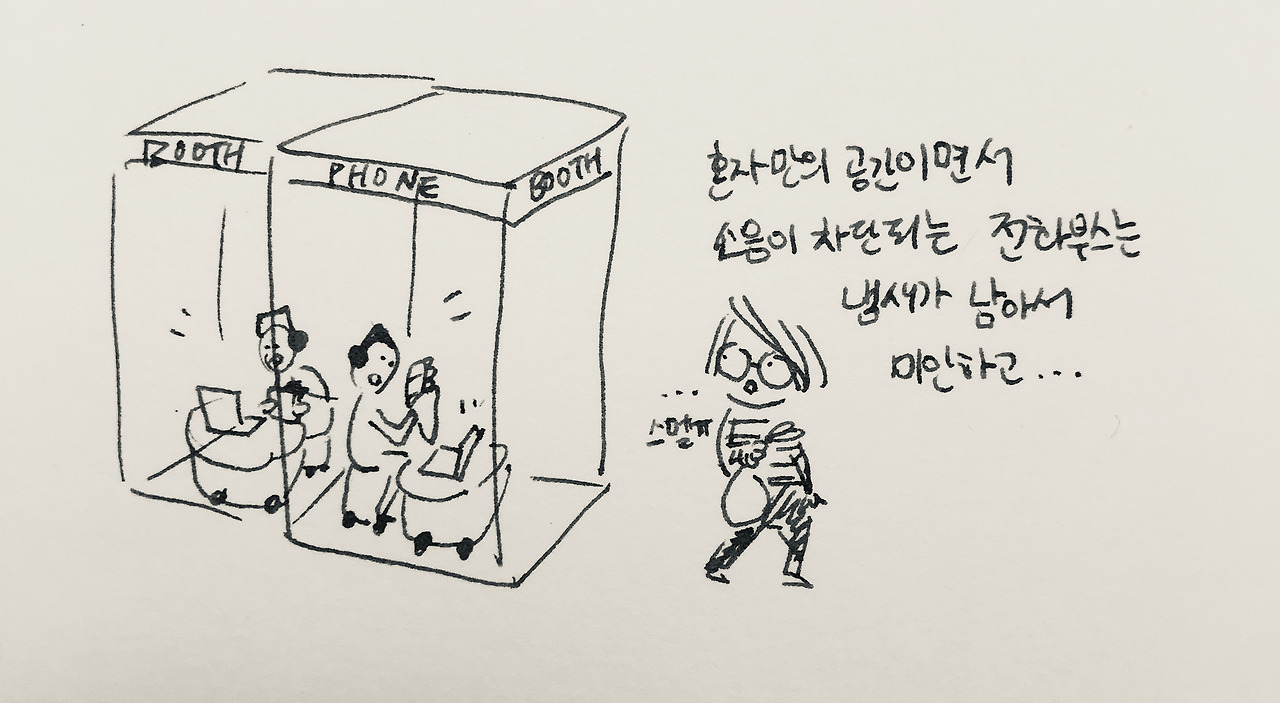 BOOTH
PHONE BOOTH
혼자만의 공간이면서
소음이 차단되는 전화부스는
냄새가 남아서
미안하고...
...
스멜ㅠ